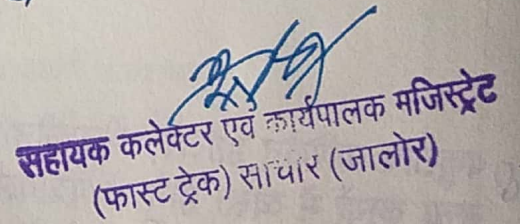 सहायक कलेक्टर एवं कार्यपालक मजिस्ट्रेट
(फास्ट ट्रेक) सांचोर (जालोर)